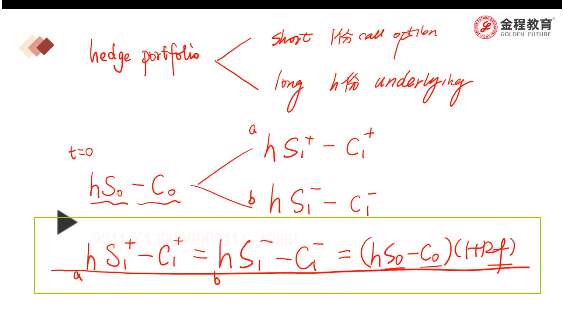 金程教育
GOLDEN FUTURE
hedge portfolio
short 1份 call option
long h份 underlying
t=0
hS₀ - C₀
a hS₁⁺ - C₁⁺
b hS₁⁻ - C₁⁻
hS₁⁺ - C₁⁺ = hS₁⁻ - C₁⁻ = (hS₀ - C₀)(1+Rf)
a b